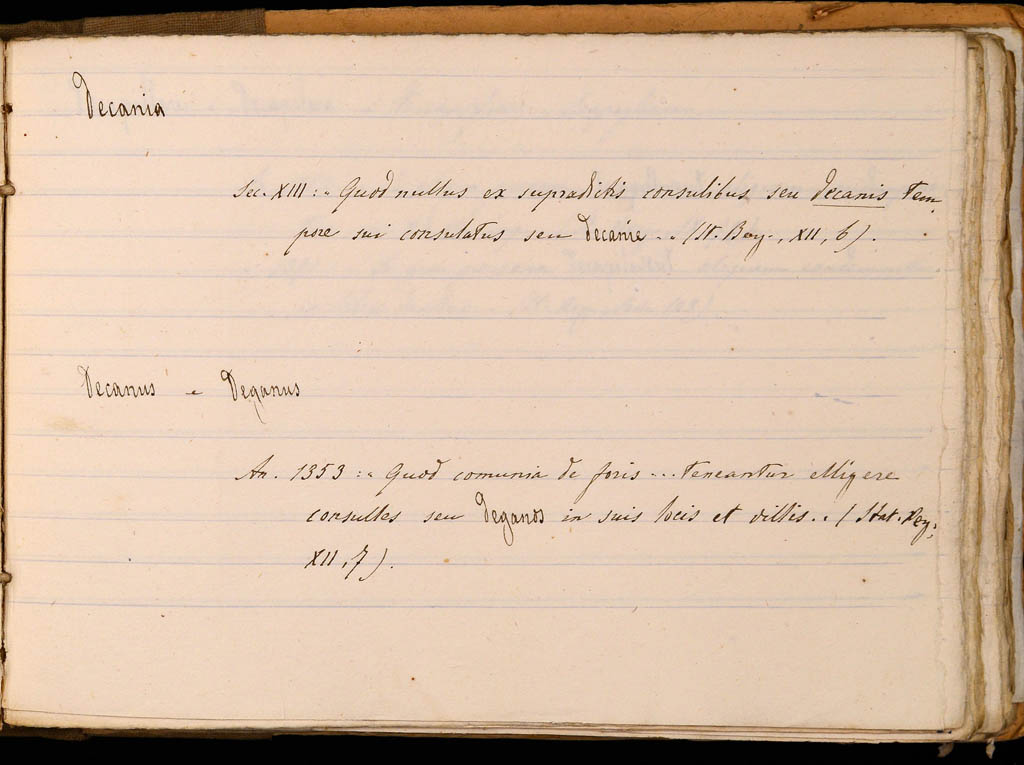 Decania
Sec. XIII: " Quod nullus ex supradictis consulibus seu decanis tem,
pore sui consulatus seu decanie " (St. Berg., XII, 6).
Decanus e Deganus
An. 1353: " Quod comunia de foris ... teneantur elligere
consules seu deganos in suis locis et villis " (Stat. Berg.
XII, 7).